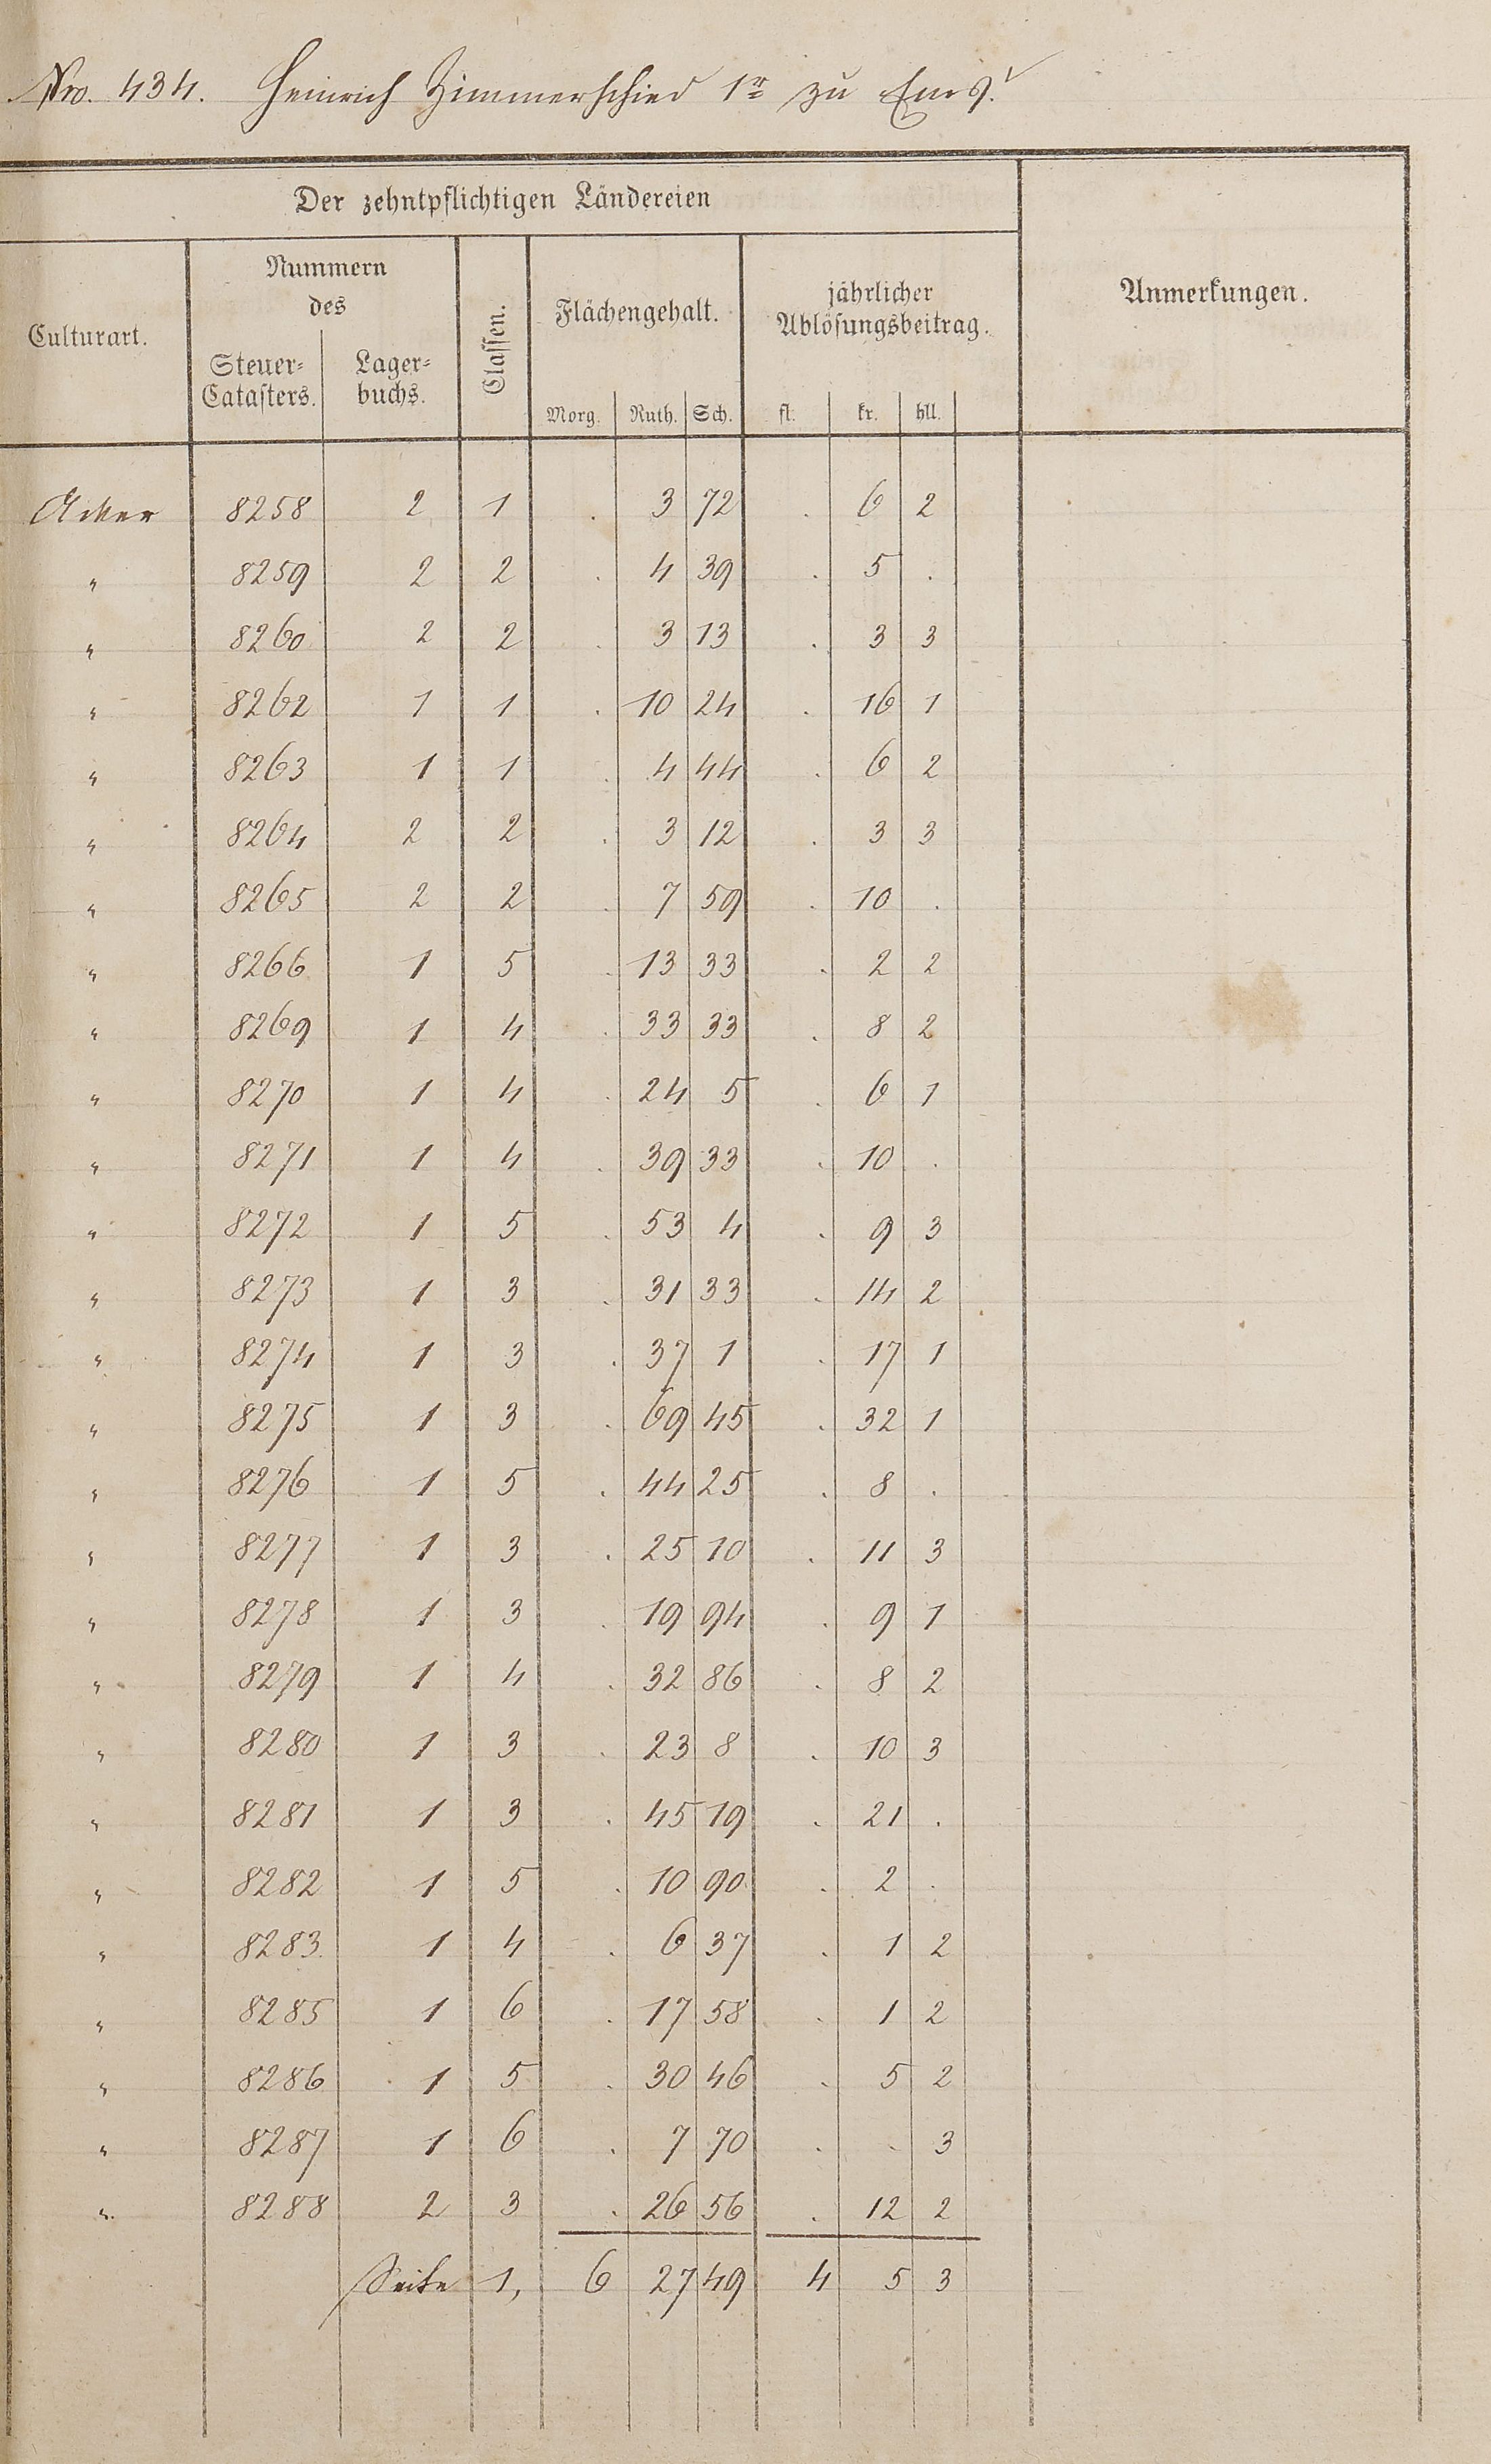 Nro. 434. Heinrich Zimmerschied 1r zu Ems.
Der zehntpflichtigen Ländereien
Culturart. Nummern des Steuer-Catasters. Lager-buchs. Classen. Flächengehalt. Morg. Ruth. Sch. jährlicher Ablösungsbeitrag. fl. kr. hll. Anmerkungen.
Acker 8258 2 1 . 3 72 . 6 2
" 8259 2 2 . 4 39 . 5 .
" 8260 2 2 . 3 13 . 3 3
" 8262 1 1 . 10 24 . 16 1
" 8263 1 1 . 4 44 . 6 2
" 8264 2 2 . 3 12 . 3 3
" 8265 2 2 . 7 59 . 10 .
" 8266 1 5 . 13 33 . 2 2
" 8269 1 4 . 33 33 . 8 2
" 8270 1 4 . 24 5 . 6 1
" 8271 1 4 . 39 33 . 10 .
" 8272 1 5 . 53 4 . 9 3
" 8273 1 3 . 31 33 . 14 2
" 8274 1 3 . 37 1 . 17 1
" 8275 1 3 . 69 45 . 32 1
" 8276 1 5 . 44 25 . 8 .
" 8277 1 3 . 25 10 . 11 3
" 8278 1 3 . 19 94 . 9 1
" 8279 1 4 . 32 86 . 8 2
" 8280 1 3 . 23 8 . 10 3
" 8281 1 3 . 45 19 . 21 .
" 8282 1 5 . 10 90 . 2 .
" 8283 1 4 . 6 37 . 1 2
" 8285 1 6 . 17 58 . 1 2
" 8286 1 5 . 30 46 . 5 2
" 8287 1 6 . 7 70 . . 3
" 8288 2 3 . 26 56 . 12 2
Seite 1, 6 27 49 4 5 3